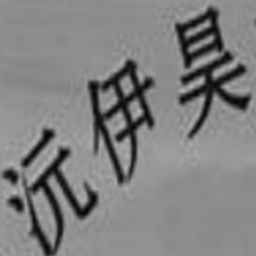 沅伊昊